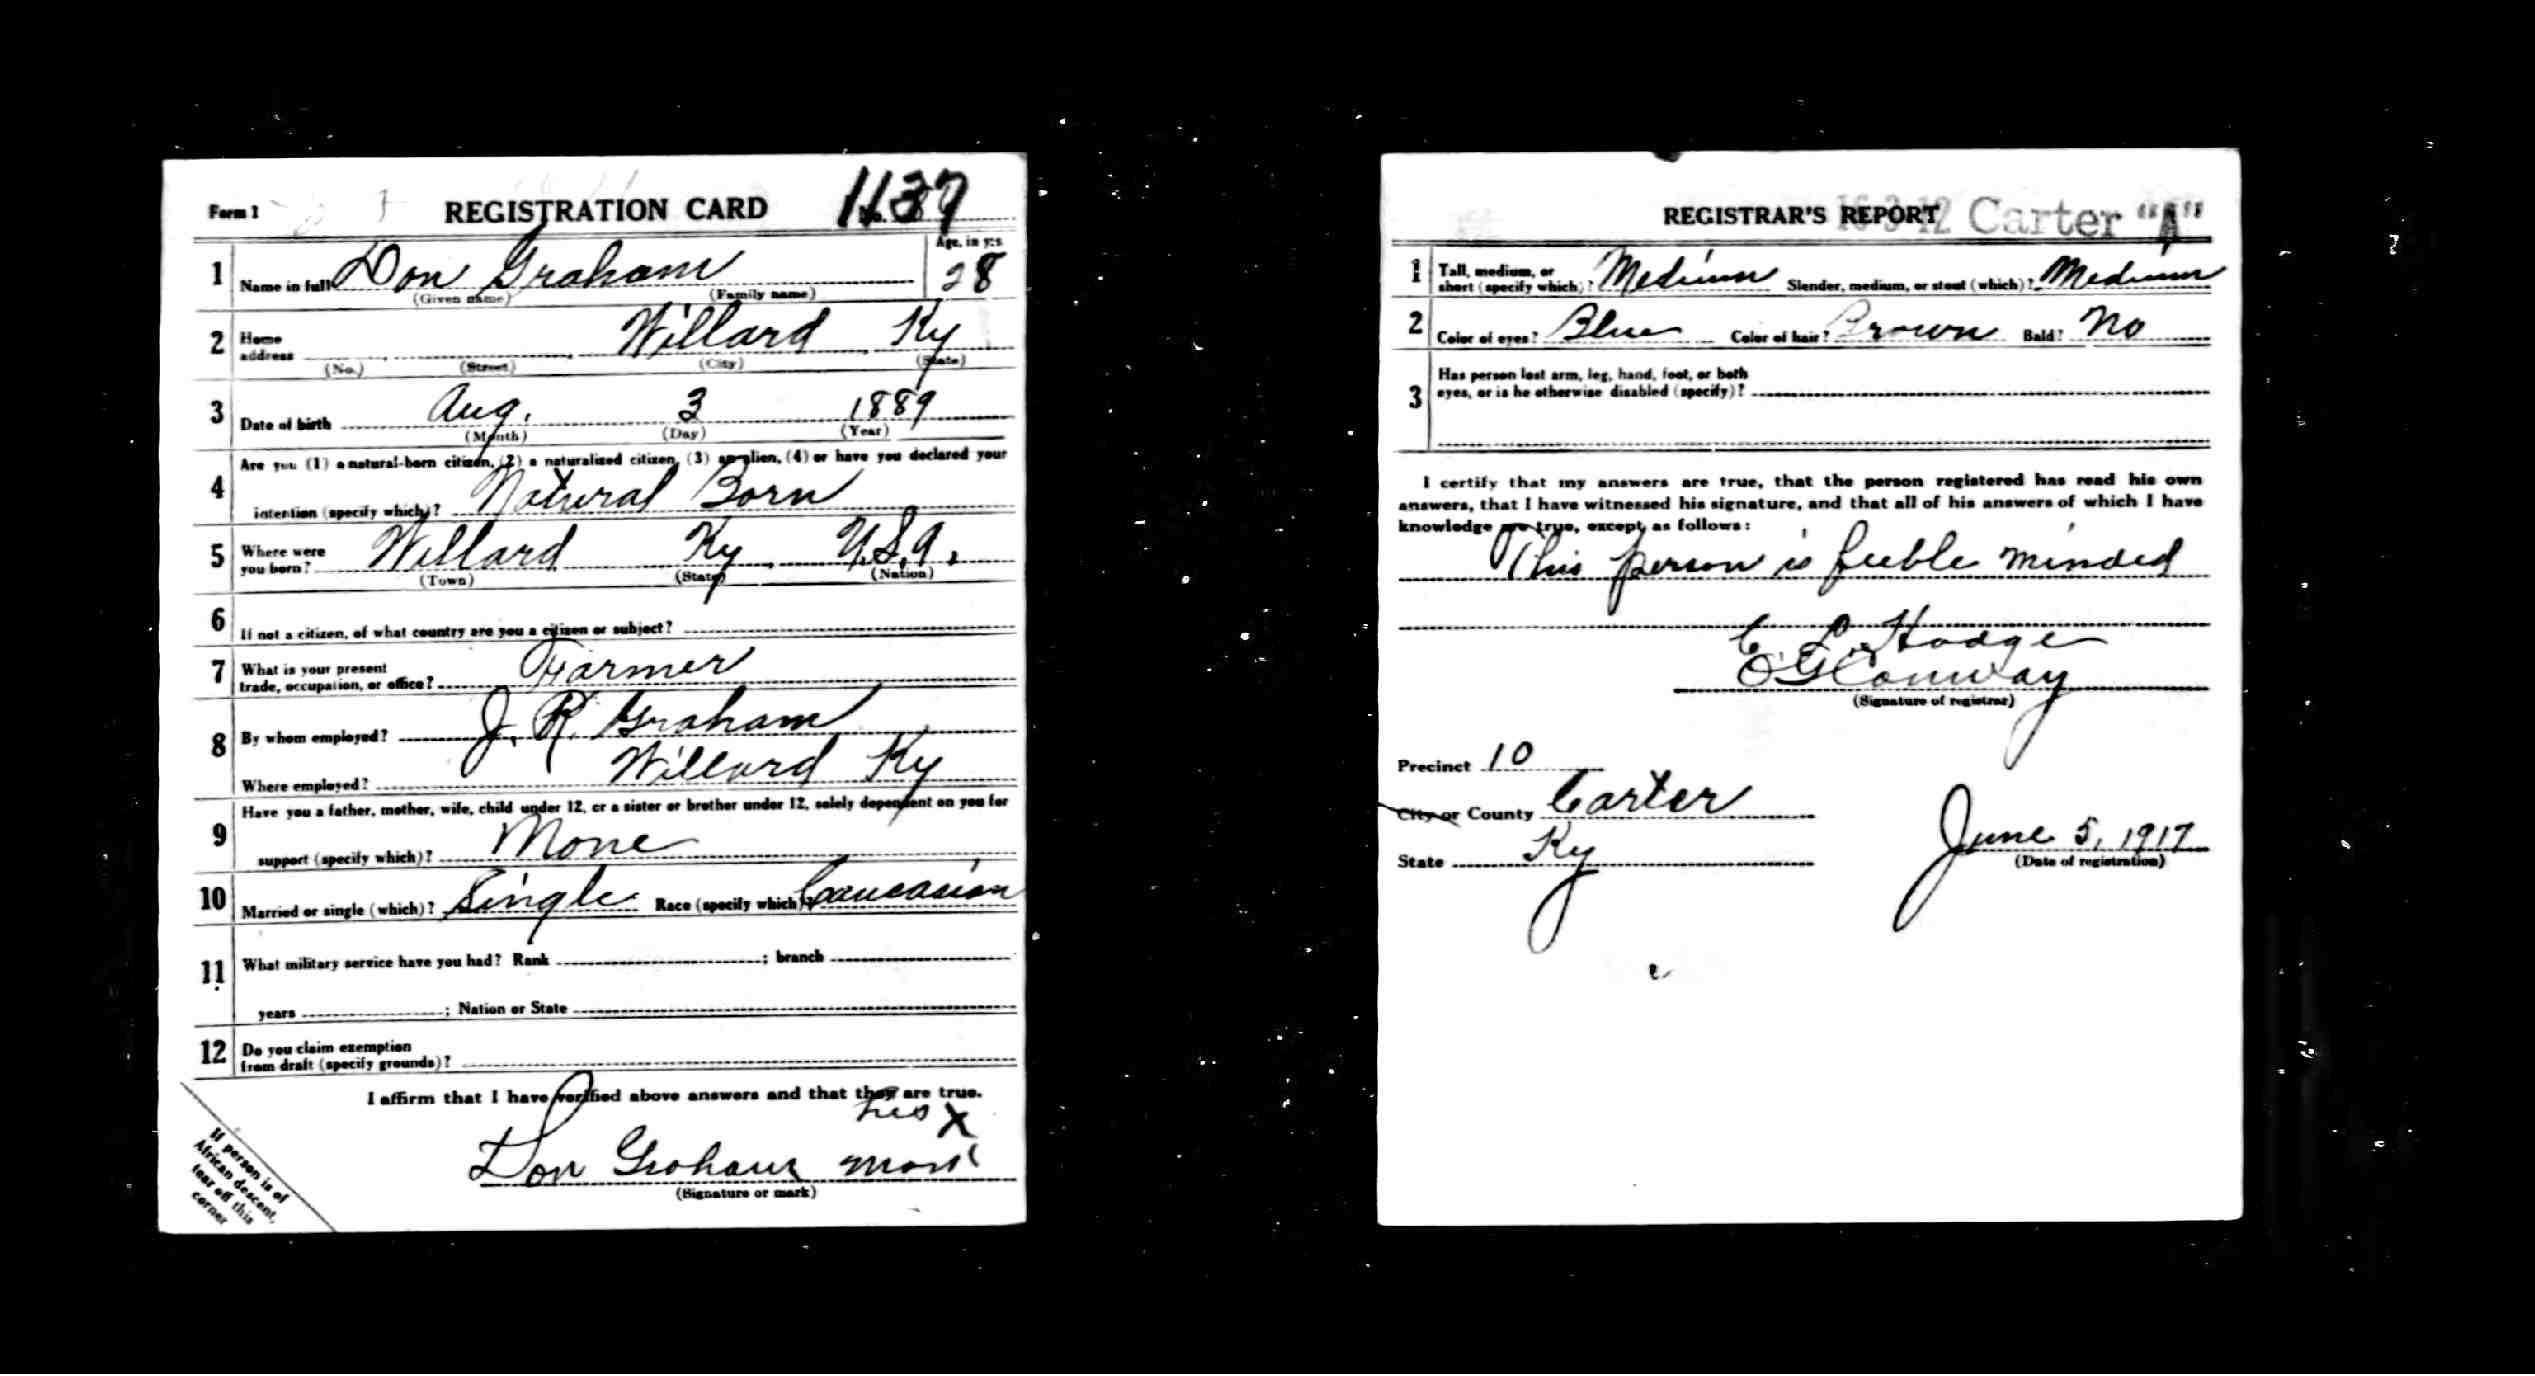 Form 1 REGISTRATION CARD No. 1137
1 Name in full Don Graham Age, in yrs. 28
(Given name) (Family name)
2 Home address Willard Ky
(No.) (Street) (City) (State)
3 Date of birth Aug. 3 1889
(Month) (Day) (Year)
4 Are you (1) a natural-born citizen, (2) a naturalized citizen, (3) an alien, (4) or have you declared your
intention (specify which)? Natural Born
5 Where were you born? Willard Ky U.S.A.
(Town) (State) (Nation)
6 If not a citizen, of what country are you a citizen or subject?
7 What is your present
trade, occupation, or office? Farmer
8 By whom employed? J. R. Graham
Where employed? Willard Ky
9 Have you a father, mother, wife, child under 12, or a sister or brother under 12, solely dependent on you for
support (specify which)? None
10 Married or single (which)? Single Race (specify which)? Caucasian
11 What military service have you had? Rank ; branch
years ; Nation or State
12 Do you claim exemption
from draft (specify grounds)?
I affirm that I have verified above answers and that they are true.
his X
Don Graham mark
(Signature or mark)
If person is of
African descent,
tear off this
corner
REGISTRAR'S REPORT 16-3-12 Carter "A"
1 Tall, medium, or
short (specify which)? Medium Slender, medium, or stout (which)? Medium
2 Color of eyes? Blue Color of hair? Brown Bald? No
3 Has person lost arm, leg, hand, foot, or both
eyes, or is he otherwise disabled (specify)?
I certify that my answers are true, that the person registered has read his own
answers, that I have witnessed his signature, and that all of his answers of which I have
knowledge are true, except as follows:
This person is feeble minded
C L Hodge
O G Conway
(Signature of registrar)
Precinct 10
City or County Carter
State Ky June 5, 1917
(Date of registration)